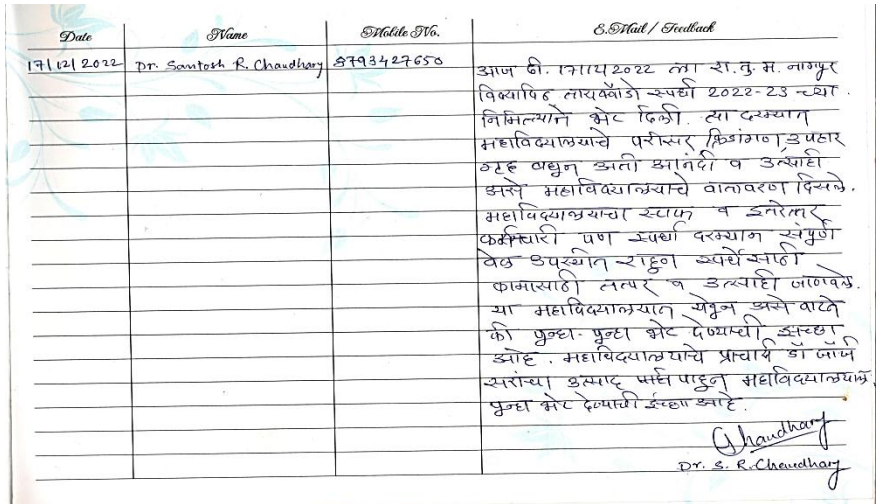 Date Name Mobile No. E.Mail / Feedback
17/12/2022 Dr. Santosh R. Chaudhary 8793427650
आज दी. 17/12/2022 ला रा. तु. म. नागपूर
विद्यापिठ तायक्वॉंडो स्पर्धा 2022-23 च्या
निमित्याने भेट दिली. त्या दरम्यान
महाविद्यालयाचे परीसर, क्रिडांगण, उपहार
गृह बघुन अती आनंदी व उत्साही
असे महाविद्यालयाचे वातावरण दिसले.
महाविद्यालयाचा स्टाफ व इतरेत्तर
कर्मचारी पण स्पर्धा दरम्यान संपूर्ण
वेळ उपस्थीत राहुन स्पर्धेसाठी
कामासाठी तत्पर व उत्साही जाणवले.
या महाविद्यालयात येवून असे वाटते
की पून्हा-पून्हा भेट देण्याची इच्छा
आहे. महाविद्यालयाचे प्राचार्य डॉ जॉर्ज
सरांचा उत्साद पाहुन महाविद्यालयाने
पून्हा भेट देण्याची इच्छा आहे.
Chaudhary
Dr. S. R. Chaudhary